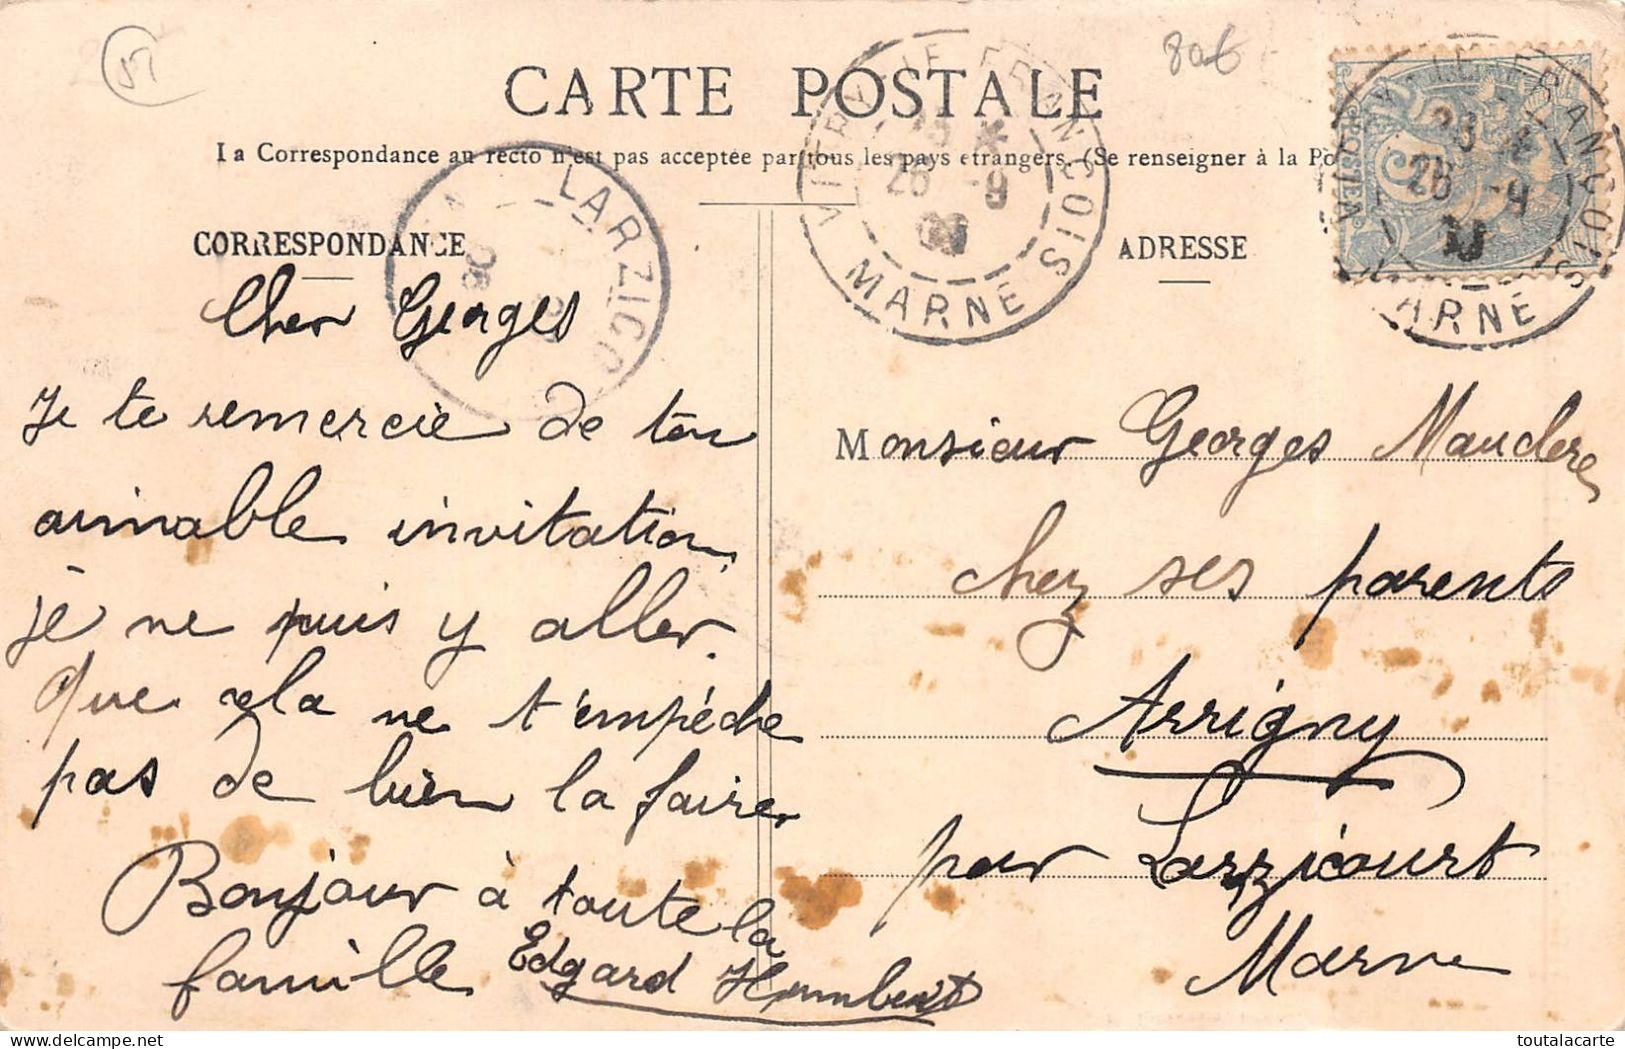 51
80f
CARTE POSTALE
La Correspondance au recto n'est pas acceptée par tous les pays étrangers. (Se renseigner à la Po
CORRESPONDANCE
Cher Georges
Je te remercie de ton
aimable invitation,
je ne puis y aller.
Que cela ne t'empéche
pas de bien la faire,
Bonjour à toute la
famille Edgard Humbert
LARZICO
VITRY-LE-FRANCOIS
26 -9
MARNE
ADRESSE
VITRY-LE-FRANCOIS
26 -9
MARNE
POSTES
5
Monsieur Georges Maudere
chez ses parents
Arrigny
par Larzicourt
Marne
toutalacarte